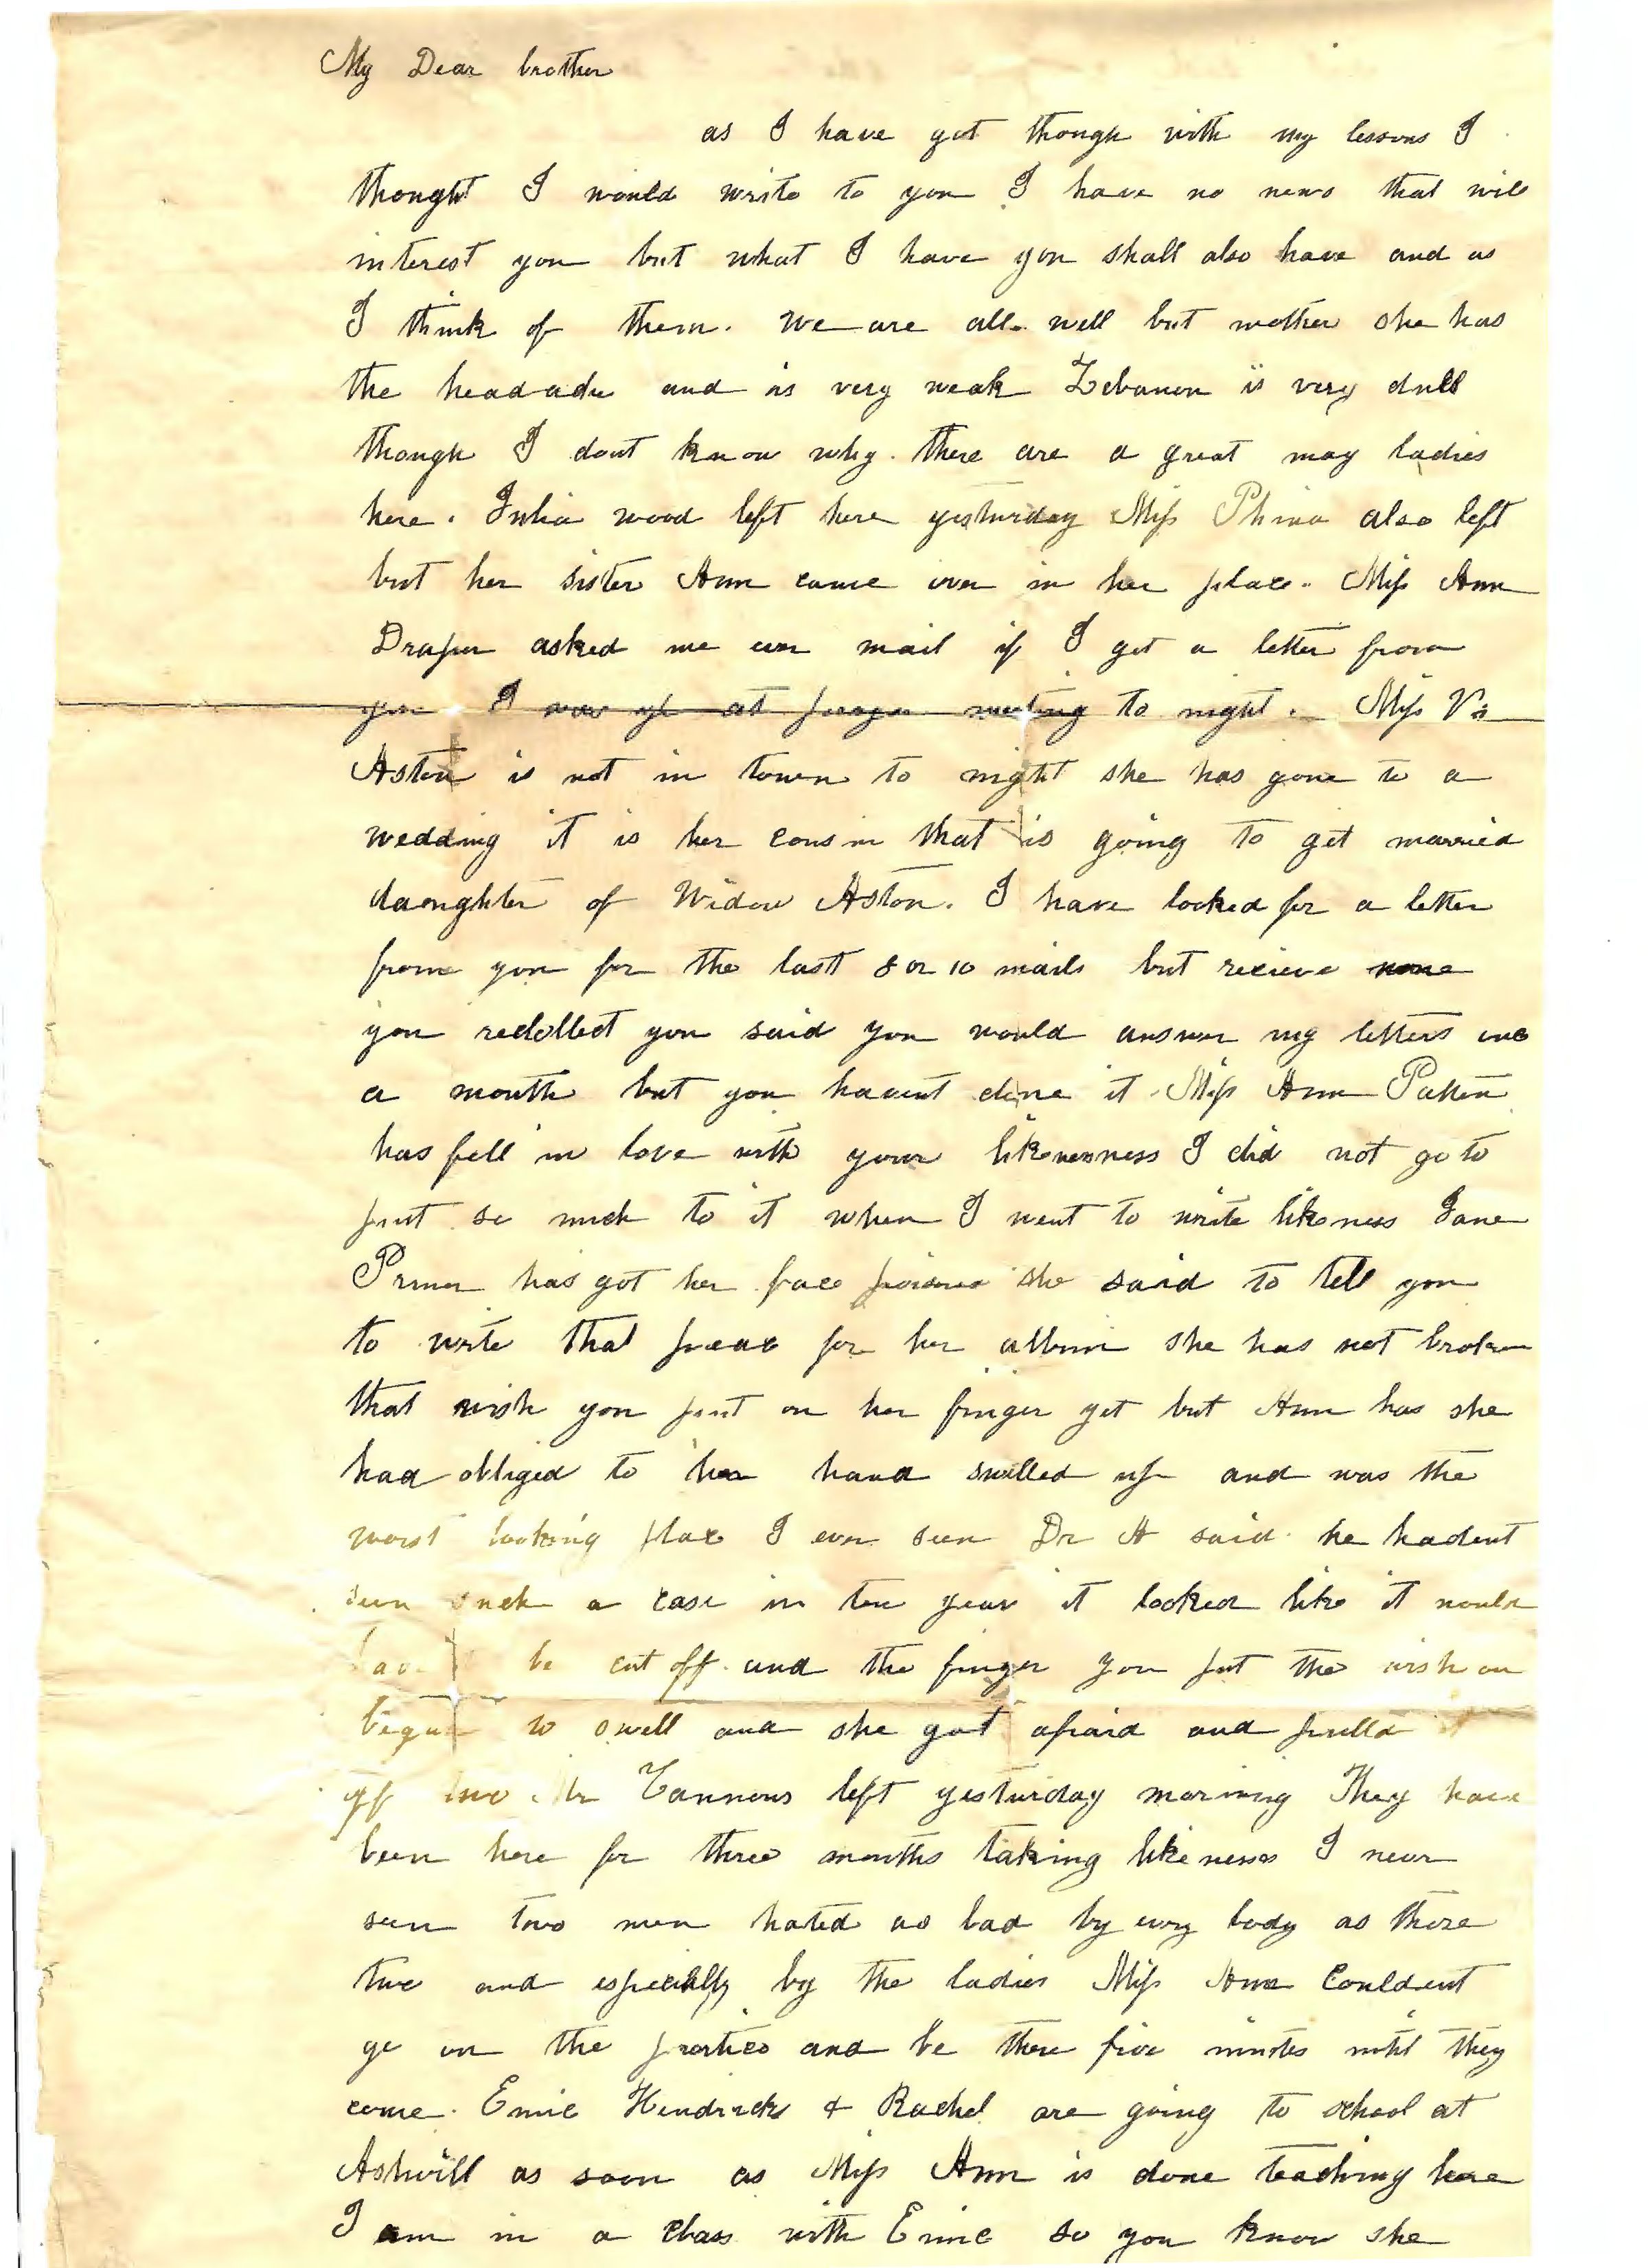 My Dear brother
as I have got though with my lessons I
thought I would write to you I have no news that will
interest you but what I have you shall also have and as
I think of them. We are all well but mother she has
the headache and is very weak Lebanon is very dull
though I dont know why. there are a great may ladies
here. Julia wood left here yesturday Miss Phina also left
but her sister Ann came over in her place. Miss Ann
Draper asked me ever mail if I got a letter from
you I was up at prayer meeting to night. Miss V
Aston is not in town to night she has gone to a
wedding it is her cousin that is going to get married
daughter of Widow Aston. I have looked for a letter
from you for the last 8 or 10 mails but recieve none
you recollect you said you would answer my letters once
a month but you havent done it Miss Ann Patton
has fell in love with your likenenness I did not go to
put so much to it when I went to write likeness Jane
has got her face she said to tell you
to write that peace for her album she has not broken
that wish you put on her finger yet but Ann has she
had obliged to her hand swelled up and was the
worst looking place I ever seen Dr A said he hadent
seen such a case in ten year it looked like it would
have be cut off and the finger you put the wish on
begun to swell and she got afraid and pulld it
off two Mr Cannons left yesturday morning They have
been here for three months taking likeness I never
seen two men hated as bad by evry body as those
two and especially by the ladies Miss Ann Couldent
go on the portico and be there five minutes until they
come. Emie Hendricks & Rachel are going to school at
Ashvill as soon as Miss Ann is done teaching here
I am in a class with Emie so you know she